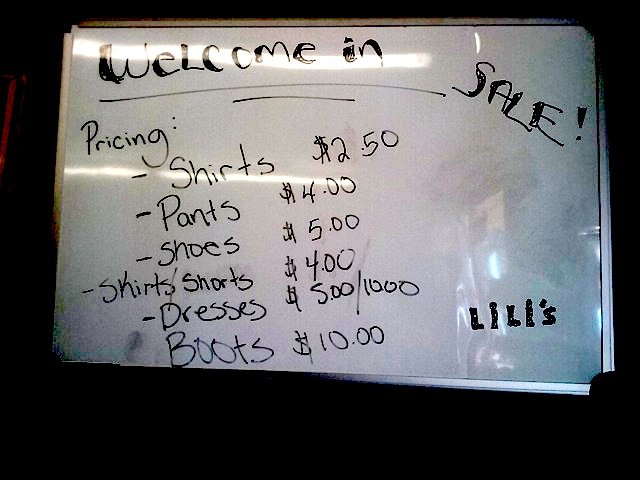 WELCOME in
SALE!
Pricing:
- Shirts $2.50
- Pants $4.00
- Shoes $5.00
- Skirts/Shorts $4.00
- Dresses $5.00/1000
Boots $10.00
LILI's